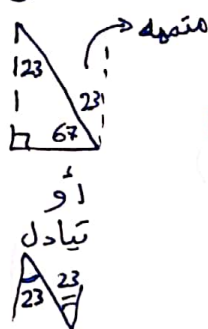 متممه
23
23
67
أو
تبادل
23 23